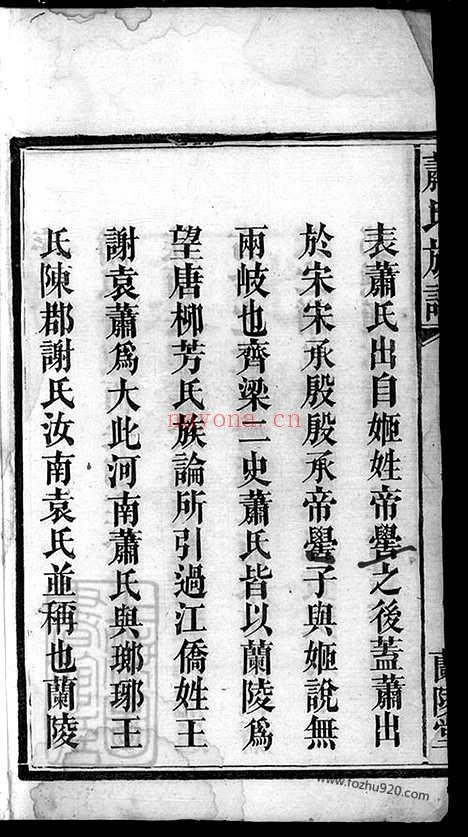 蕭氏族譜
蘭陵堂
表蕭氏出自姬姓帝嚳之後蓋蕭出
於宋宋承殷殷承帝嚳子與姬說無
兩岐也齊梁二史蕭氏皆以蘭陵為
望唐柳芳氏族論所引過江僑姓王
謝袁蕭為大此河南蕭氏與瑯琊王
氏陳郡謝氏汝南袁氏並稱也蘭陵
nayona.cn
www.fozhu920.com